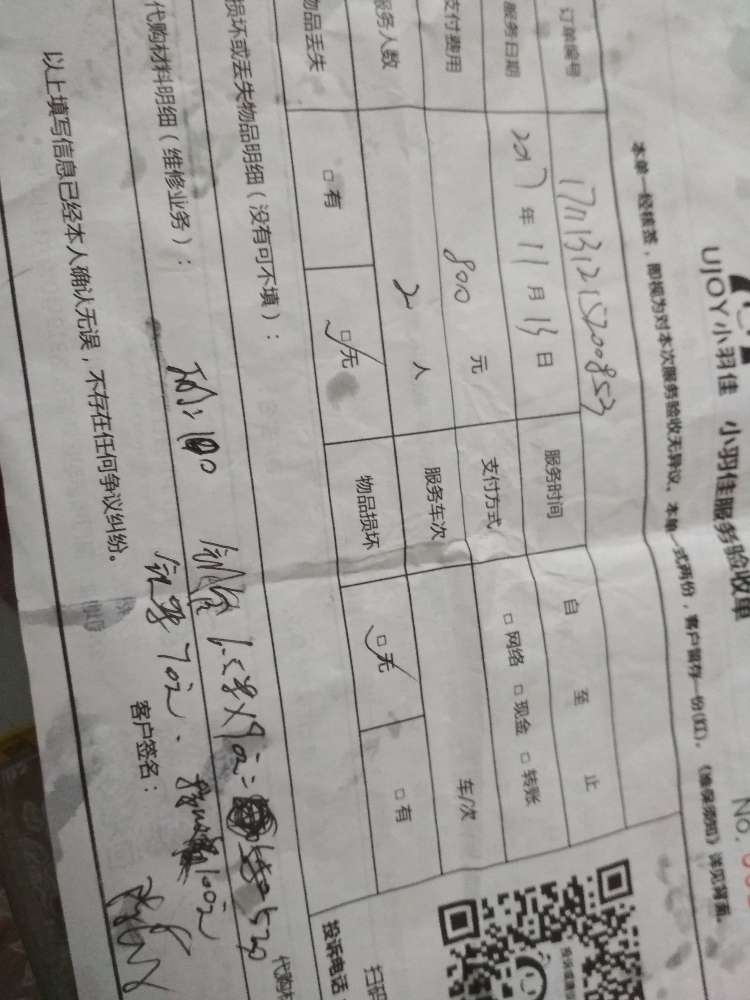 UJOY小羽佳 小羽佳服务验收单
No.
本单一经核签，即视为对本次服务验收无异议。本单一式两份，客户留存一份(红)。《维保须知》详见背面。
订单编号 1711131215200853 服务时间 自 至 止
服务日期 2017年11月13日 支付方式 □网络 □现金 □转账
支付费用 800元 服务车次 车/次
服务人数 2人
物品丢失 □有 □无 物品损坏 □无 □有
损坏或丢失物品明细（没有可不填）：
代购材料明细（维修业务）：
以上填写信息已经本人确认无误，不存在任何争议纠纷。
客户签名：
扫码
投诉电话
代购材